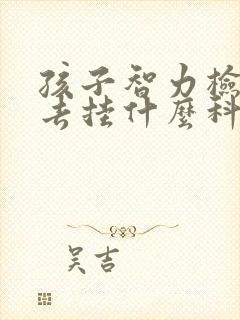 孩子智力檢
去挂什麼科
吴吉